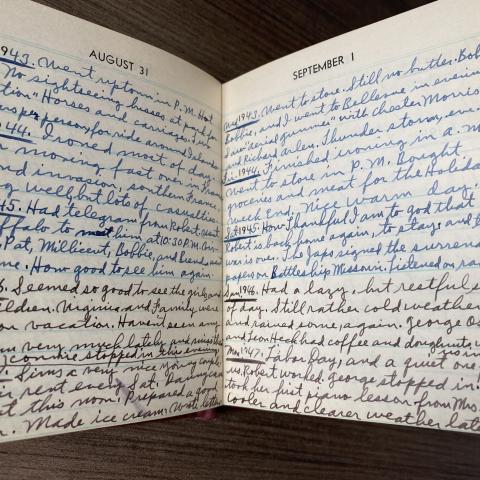 AUGUST 31
1943. Went uptown in P.M. Hot
No sightseeing busses at
Horses and carriages.
per person for ride around
1944. I ironed most of day.
moving fast one in
and invasion, southern France
well but lots of casualties.
1945. Had telegram from Robert, sent
Buffalo to meet him at 10:30 P.M.
Pat, Millicent, Bobbie, and
How good to see him again.
Seemed so good to see the girls and
Virginia and Family were
on vacation. Haven't seen
very much lately and miss
Connie stopped in this evening.
a very nice young couple
rent every Sat.
at this noon. Prepared a good
Made ice cream. Wrote letters
SEPTEMBER 1
1943. Went to store. Still no butter. Bob,
Bobbie, and I went to Bellevue in evening
"aerial gunner" with Chester Morris
and Richard Arlen. Thunder storm, eve.
Fri. 1944. Finished ironing in a.m.
Went to store in P.M. Bought
groceries and meat for the Holiday
week end. Nice warm day.
Sat. 1945. How Thankful I am to god that
Robert is back home again, to stay, and the
war is over. The Japs signed the surrender
papers on Battleship Missouri. Listened on radio
Sun. 1946. Had a lazy, but restful
of day. Still rather cold weather
and rained some, again. George
and Leon Heck had coffee and doughnuts
Mon. 1947. Labor Day, and a quiet one
Robert worked. George stopped in.
took her first piano lesson from Mrs.
Cooler and clearer weather late